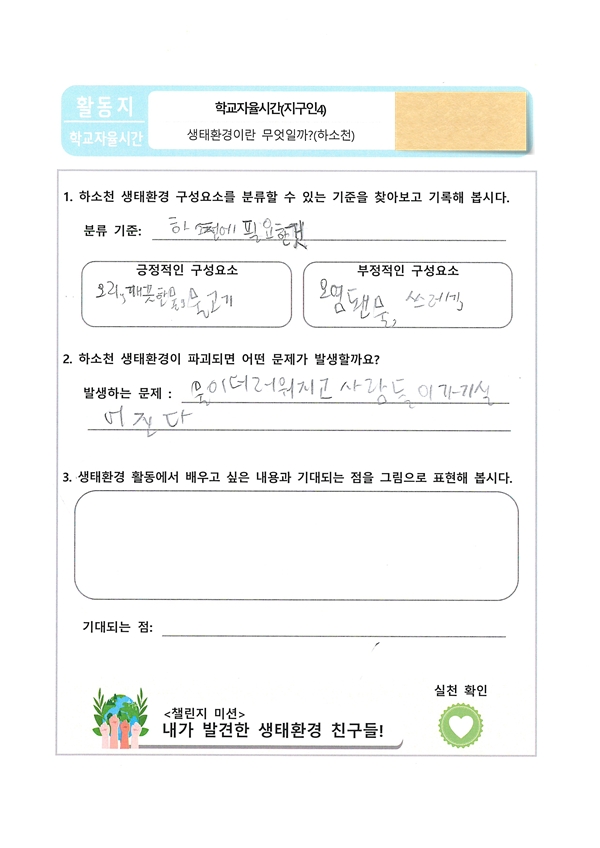 활동지
학교자율시간
학교자율시간(지구인4)
생태환경이란 무엇일까?(하소천)
1. 하소천 생태환경 구성요소를 분류할 수 있는 기준을 찾아보고 기록해 봅시다.
분류 기준: 하소천에 필요한것
긍정적인 구성요소
오리, 깨끗한물, 물고기
부정적인 구성요소
오염됀물, 쓰레기
2. 하소천 생태환경이 파괴되면 어떤 문제가 발생할까요?
발생하는 문제 : 물이더러워지고 사람들이가기실
어진다
3. 생태환경 활동에서 배우고 싶은 내용과 기대되는 점을 그림으로 표현해 봅시다.
기대되는 점:
실천 확인
<챌린지 미션>
내가 발견한 생태환경 친구들!